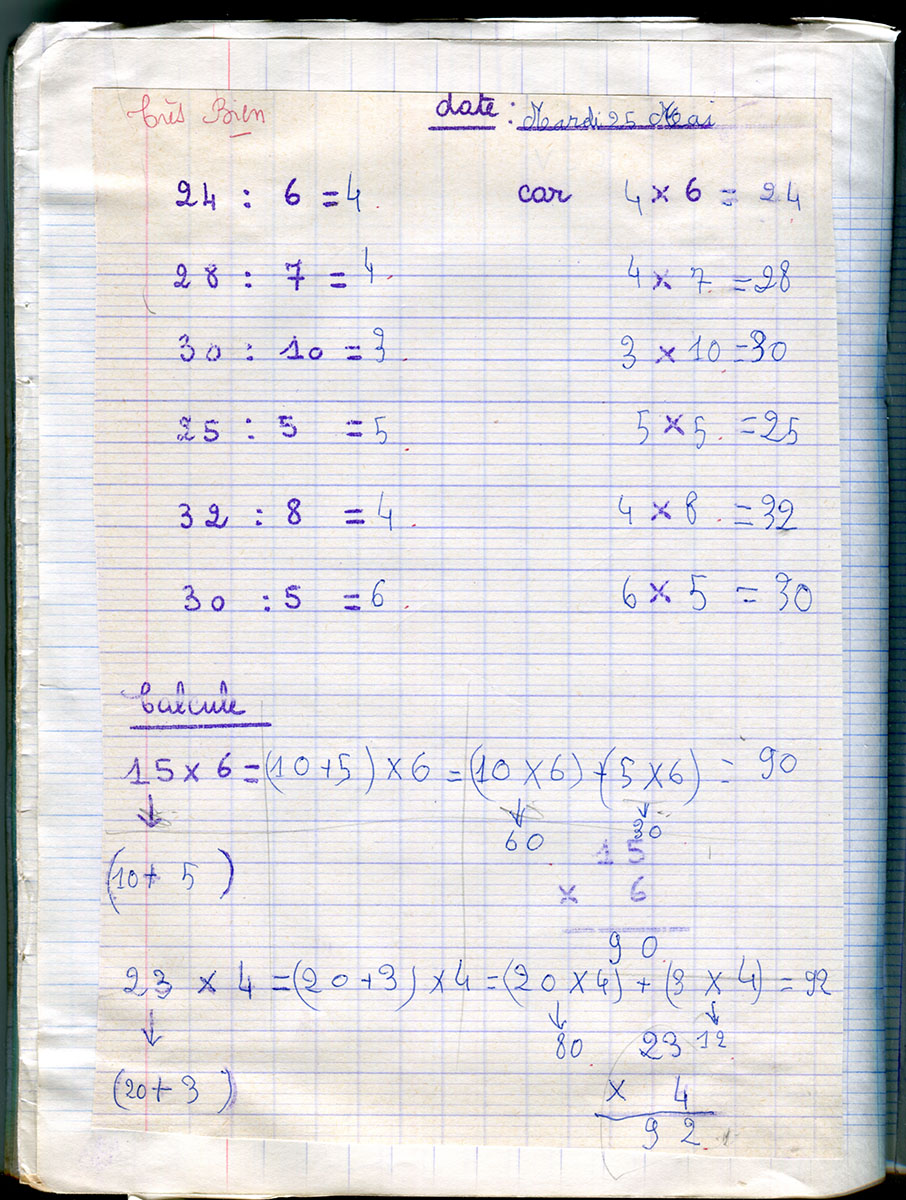 Très Bien
date : Mardi 25 Mai
24 : 6 = 4 car 4 × 6 = 24
28 : 7 = 4 4 × 7 = 28
30 : 10 = 3 3 × 10 = 30
25 : 5 = 5 5 × 5 = 25
32 : 8 = 4 4 × 8 = 32
30 : 5 = 6 6 × 5 = 30
Calcule
15 × 6 = (10 + 5) × 6 = (10 × 6) + (5 × 6) = 90
↓ ↓ ↓
60 30
(10 + 5)
15
× 6
90
23 × 4 = (20 + 3) × 4 = (20 × 4) + (3 × 4) = 92
↓ ↓ ↓
80 12
(20 + 3)
23
× 4
92